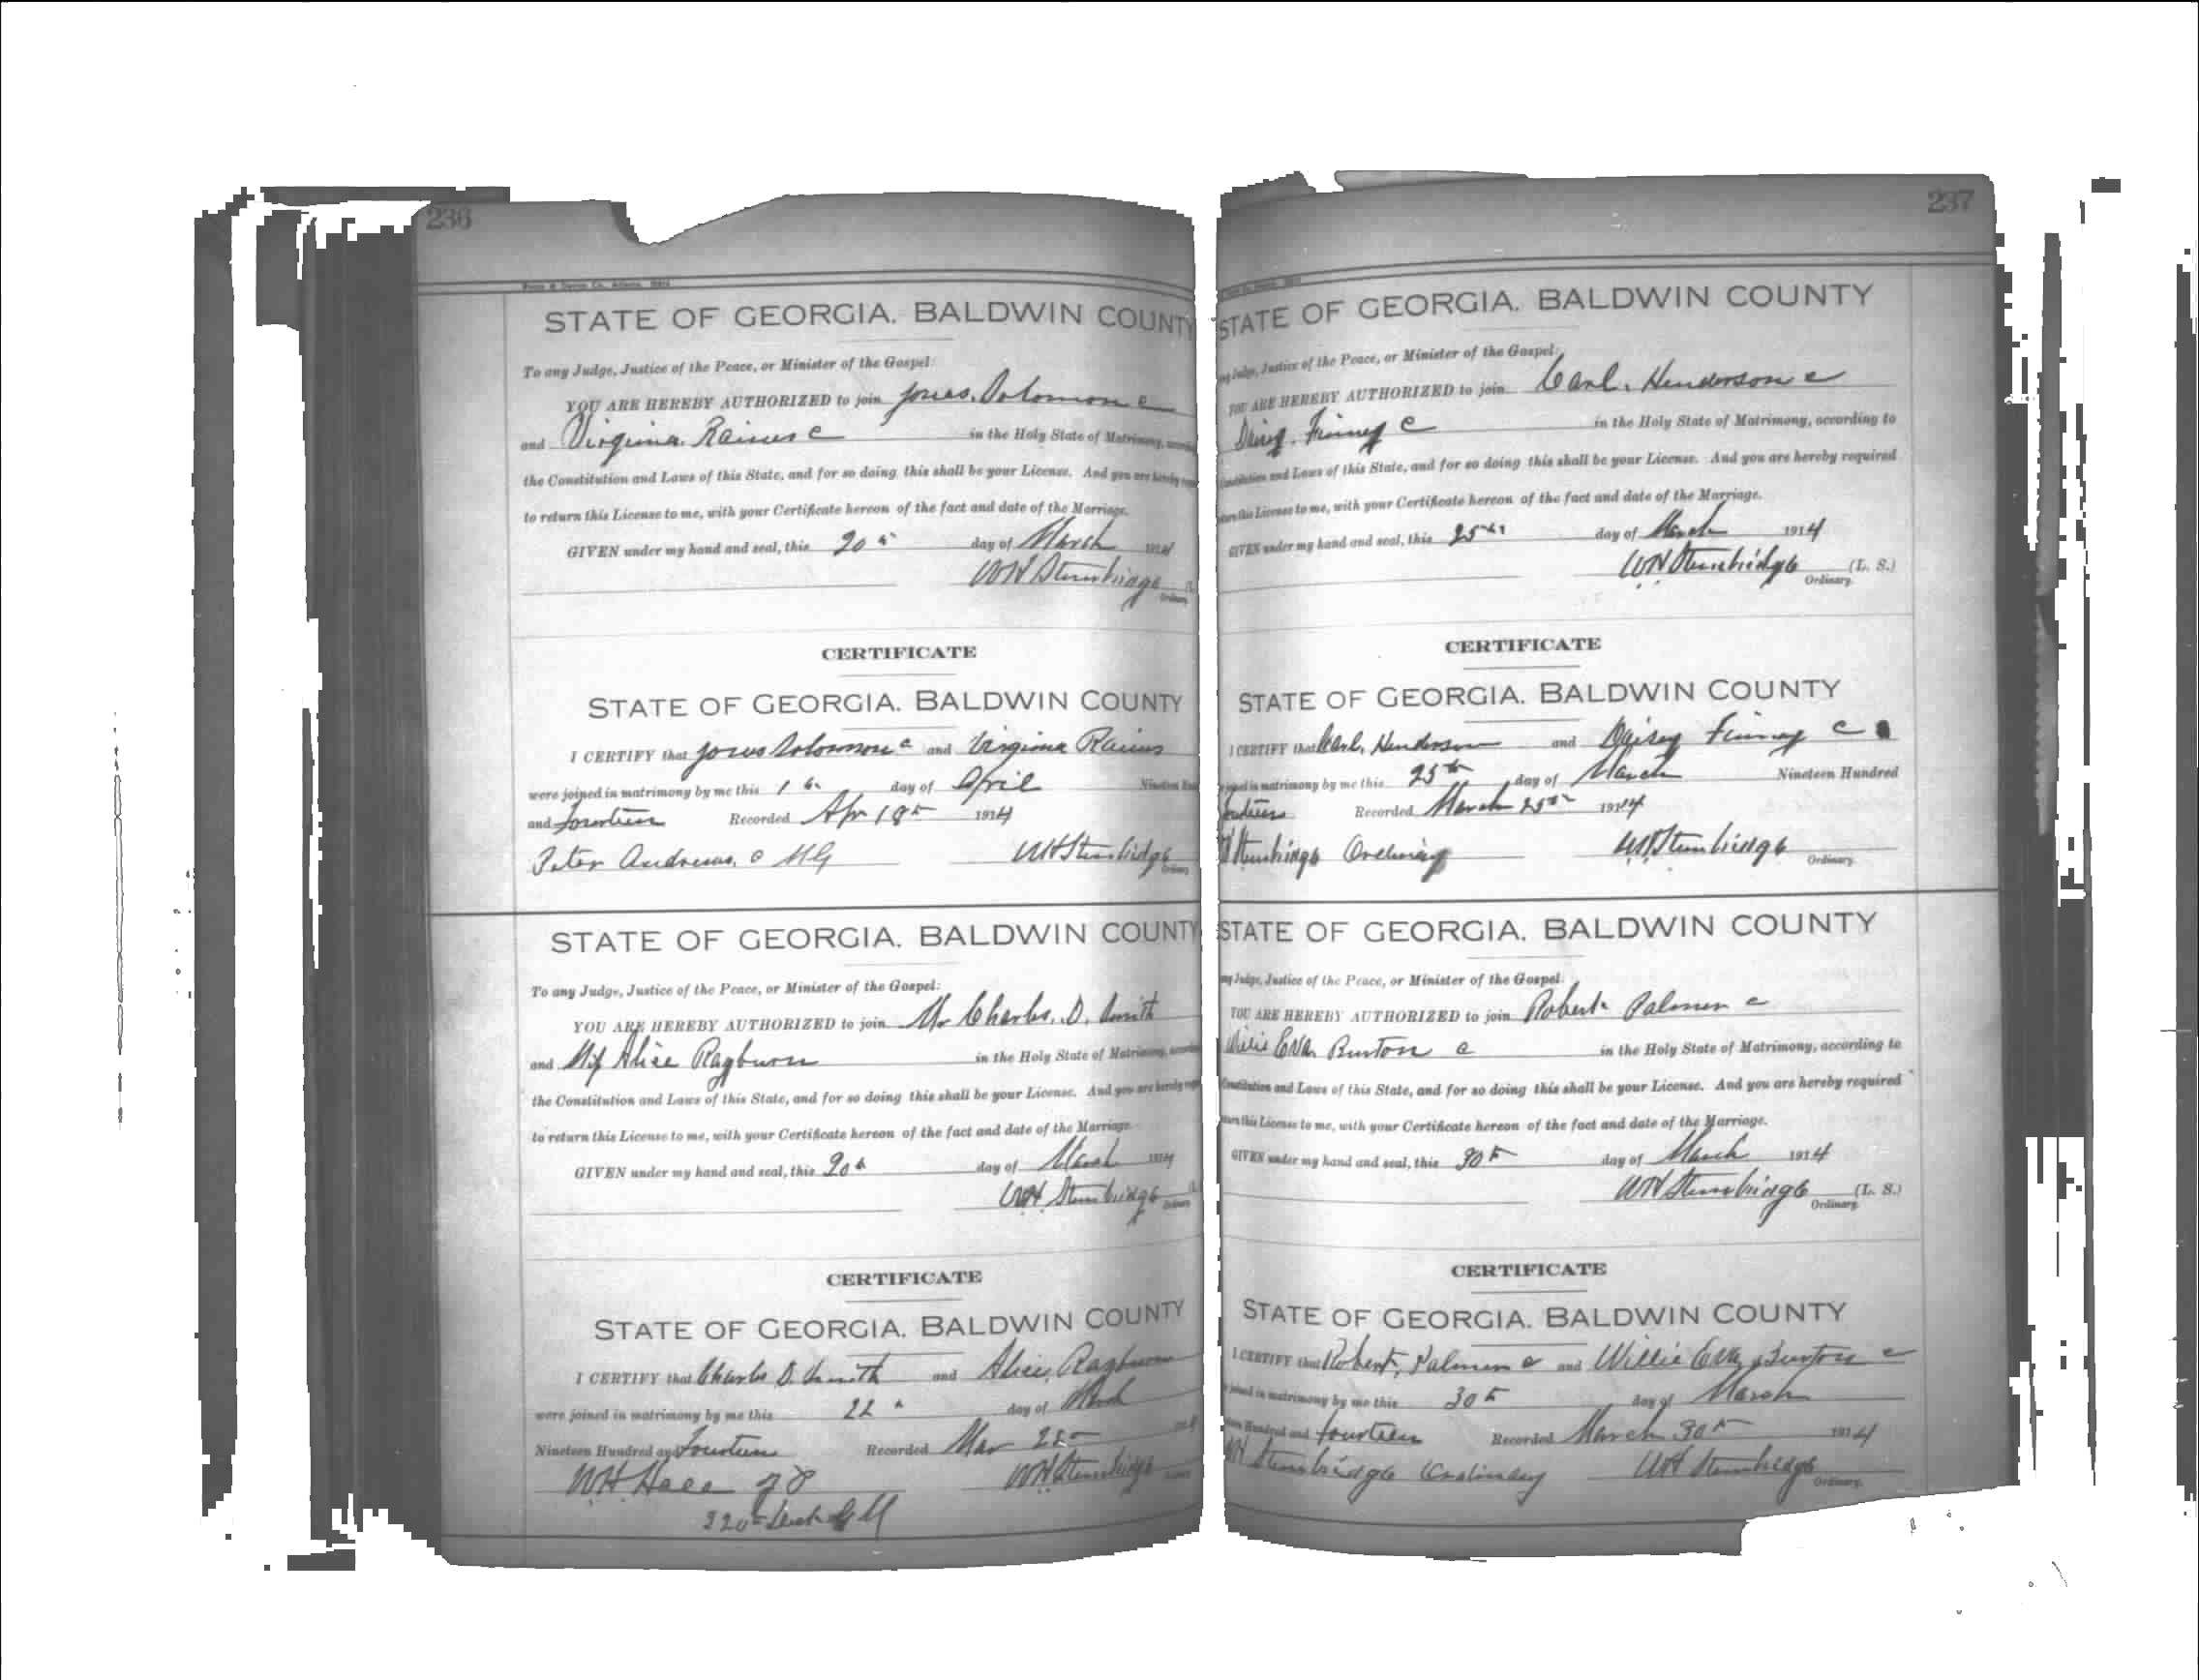 236
STATE OF GEORGIA. BALDWIN COUNTY
To any Judge, Justice of the Peace, or Minister of the Gospel:
YOU ARE HEREBY AUTHORIZED to join Solomon c
and Virginia Raines c in the Holy State of Matrimony,
the Constitution and Laws of this State, and for so doing this shall be your License. And you are hereby
to return this License to me, with your Certificate hereon of the fact and date of the Marriage.
GIVEN under my hand and seal, this 20 day of March 1914
WH Stembridge
Ordinary
CERTIFICATE
STATE OF GEORGIA. BALDWIN COUNTY
I CERTIFY that Solomon c and Virginia Raines
were joined in matrimony by me this 1 day of April Nineteen
and fourteen Recorded Apr 18th 1914
Peter Andrews. c MG WH Stembridge
Ordinary
STATE OF GEORGIA. BALDWIN COUNTY
To any Judge, Justice of the Peace, or Minister of the Gospel:
YOU ARE HEREBY AUTHORIZED to join Mr Charles. D. Smith
and Alice Rayburn in the Holy State of Matrimony,
the Constitution and Laws of this State, and for so doing this shall be your License. And you are hereby
to return this License to me, with your Certificate hereon of the fact and date of the Marriage.
GIVEN under my hand and seal, this 20th day of March 1914
WH Stembridge
Ordinary
CERTIFICATE
STATE OF GEORGIA. BALDWIN COUNTY
I CERTIFY that Charles D. Smith and Alice Rayburn
were joined in matrimony by me this 22 day of March
Nineteen Hundred and Fourteen Recorded Mar 1914
WH Stembridge
320th GM
237
STATE OF GEORGIA. BALDWIN COUNTY
Judge, Justice of the Peace, or Minister of the Gospel:
YOU ARE HEREBY AUTHORIZED to join Carl. Henderson c
Daisy. Finney c in the Holy State of Matrimony, according to
Constitution and Laws of this State, and for so doing this shall be your License. And you are hereby required
this License to me, with your Certificate hereon of the fact and date of the Marriage.
GIVEN under my hand and seal, this 25th day of March 1914
WH Stembridge (L. S.)
Ordinary.
CERTIFICATE
STATE OF GEORGIA. BALDWIN COUNTY
I CERTIFY that Carl. Henderson and Daisy Finney c
joined in matrimony by me this 25th day of March Nineteen Hundred
Recorded March 25th 1914
Stembridge Ordinary WH Stembridge
Ordinary.
STATE OF GEORGIA. BALDWIN COUNTY
Judge, Justice of the Peace, or Minister of the Gospel:
YOU ARE HEREBY AUTHORIZED to join Robert Palmer c
Willie Eva Burton c in the Holy State of Matrimony, according to
Constitution and Laws of this State, and for so doing this shall be your License. And you are hereby required
this License to me, with your Certificate hereon of the fact and date of the Marriage.
GIVEN under my hand and seal, this 30th day of March 1914
WH Stembridge (L. S.)
Ordinary.
CERTIFICATE
STATE OF GEORGIA. BALDWIN COUNTY
I CERTIFY that Robert Palmer c and Willie Eva Burton c
joined in matrimony by me this 30th day of March
Hundred and fourteen Recorded March 30th 1914
WH Stembridge Ordinary WH Stembridge
Ordinary.